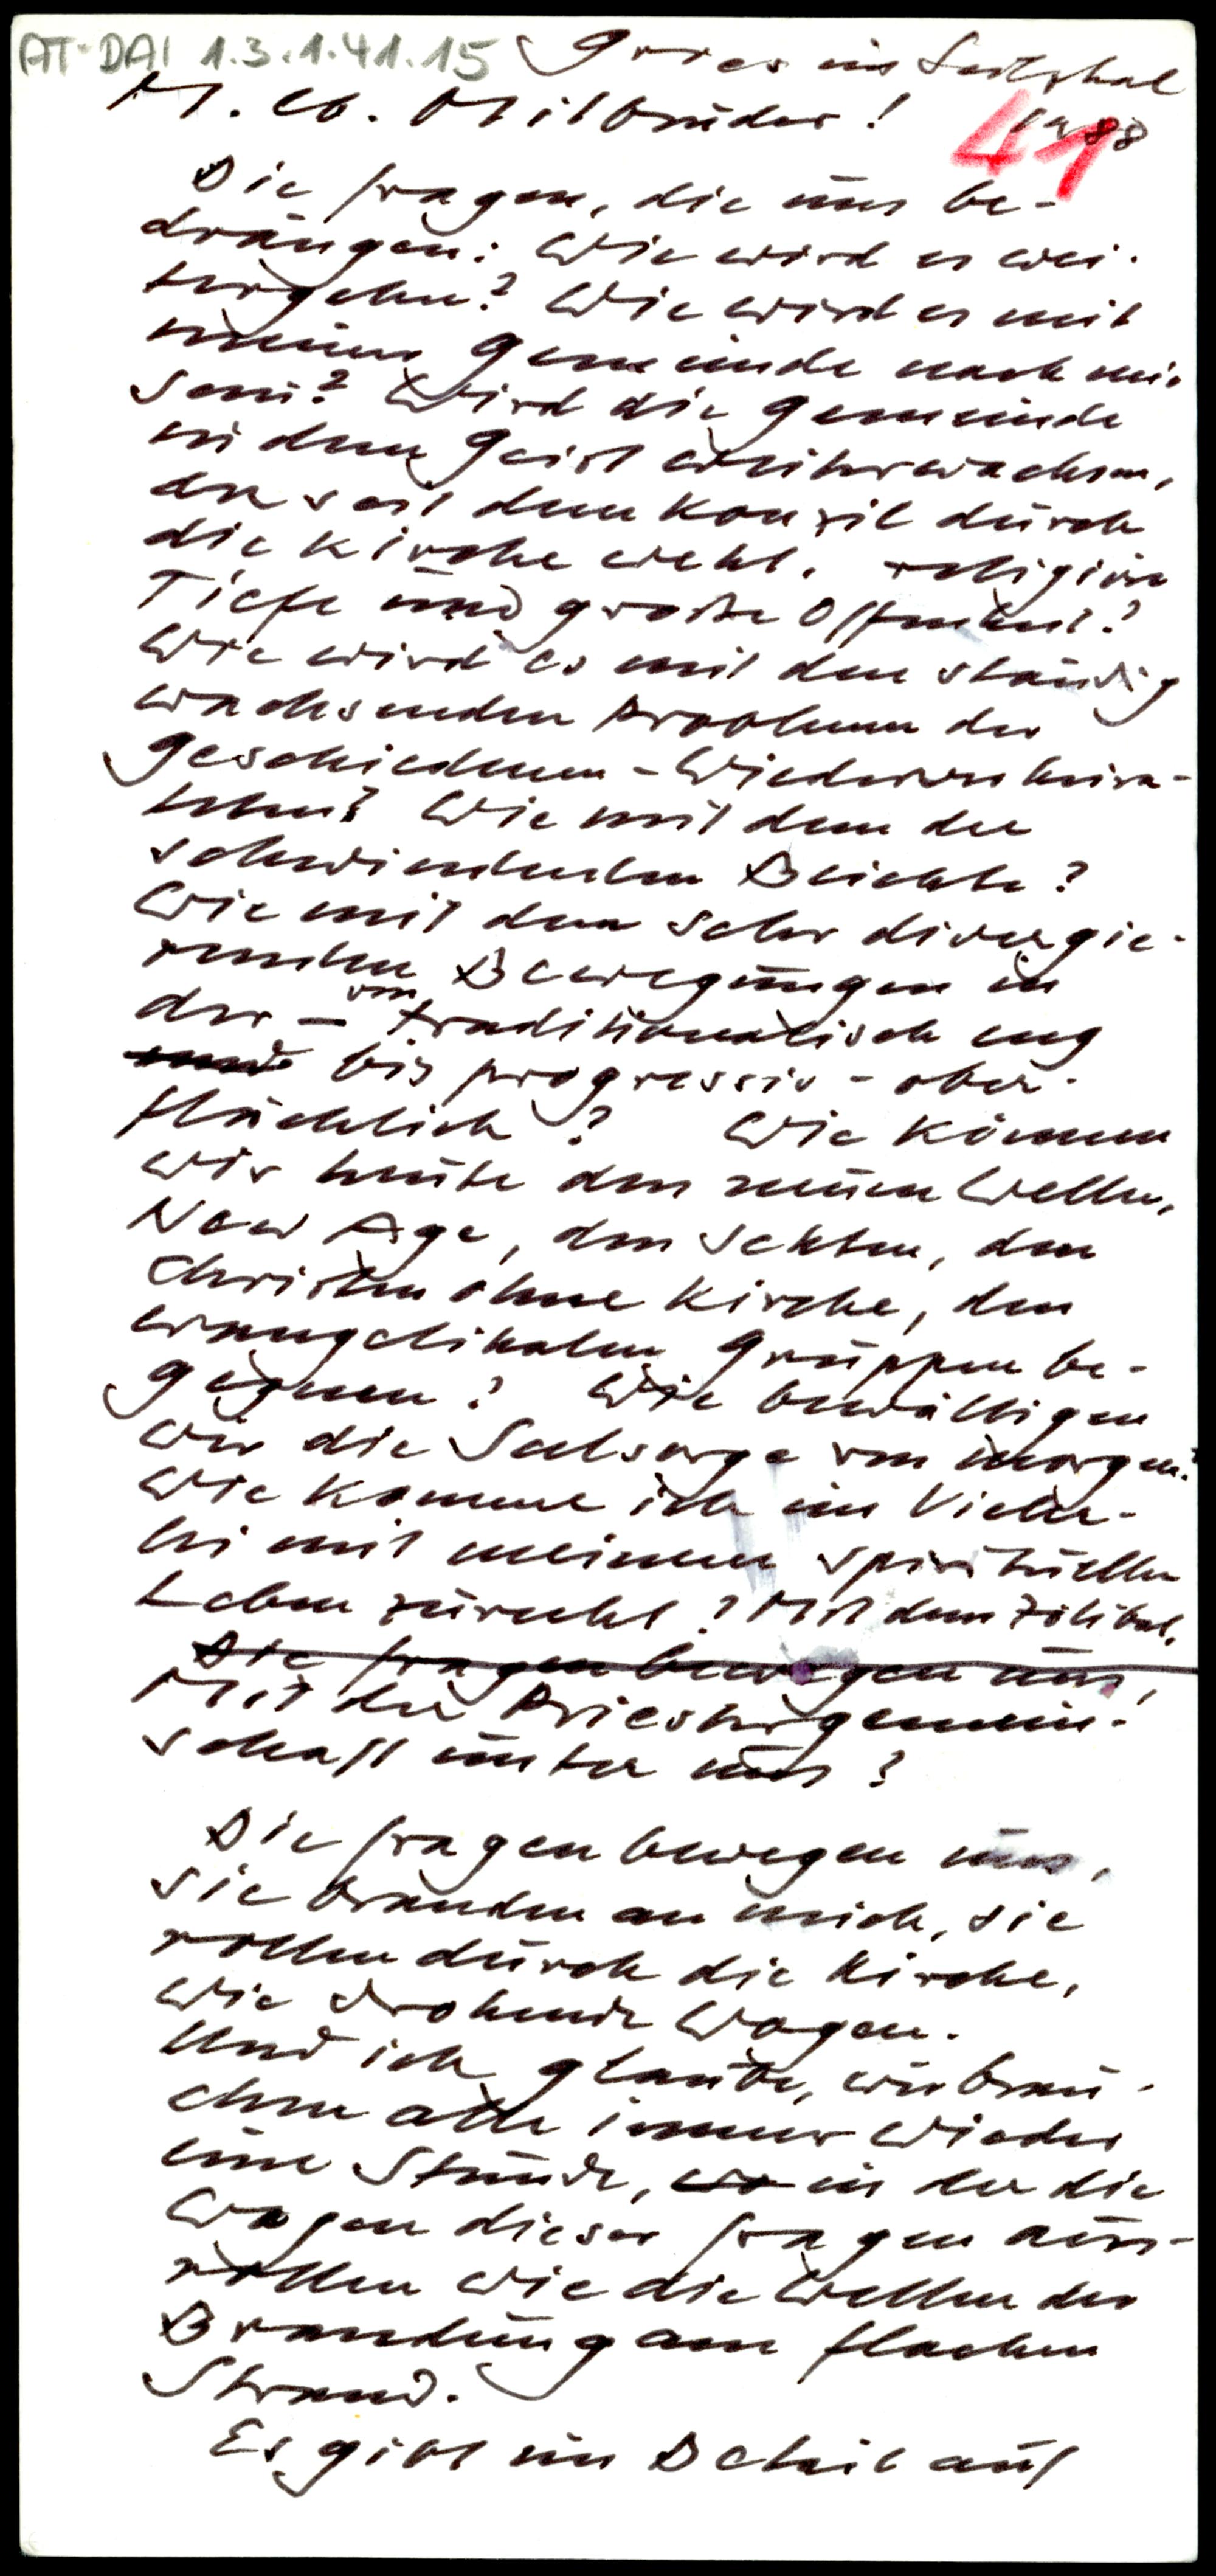 AT-DAI 1.3.1.41.15 Gries im Sulztal
M. lb. Mitbrüder! 1988
41
Die Fragen, die uns be-
drängen: Wie wird es wei-
tergehn? Wie wird es mit
meiner Gemeinde nach mir
sein? Wird die Gemeinde
in dem Geist weiterwachsen,
der seit dem Konzil durch
die Kirche weht. religiöse
Tiefe und große Offenheit?
Wie wird es mit den ständig
wachsenden Problemen der
Geschiedenen-Wiederverheira-
teten? Wie mit dem der
schwindenden Beichte?
Wie mit den sehr divergie-
renden Bewegungen in
der – von traditionalistisch eng
und bis progressiv-ober-
flächlich? Wie können
wir heute den neuen Wellen,
New Age, den Sekten, den
Christen ohne Kirche, den
evangelikalen Gruppen be-
gegnen? Wie bewältigen
wir die Seelsorge von morgen?
Wie komme ich im Vieler-
lei mit meinem spirituellen
Leben zurecht? Mit dem Zölibat.
Die Fragen bewegen uns,
Mit der Priestergemein-
schaft unter uns?
Die Fragen bewegen uns,
sie branden an mich, sie
rollen durch die Kirche,
wie drohende Wogen.
Und ich glaube, wir brau-
chen alle immer wieder
eine Stunde, wo in der die
Wogen dieser Fragen aus-
rollen wie die Wellen der
Brandung am flachen
Strand.
Es gibt im Detail auf